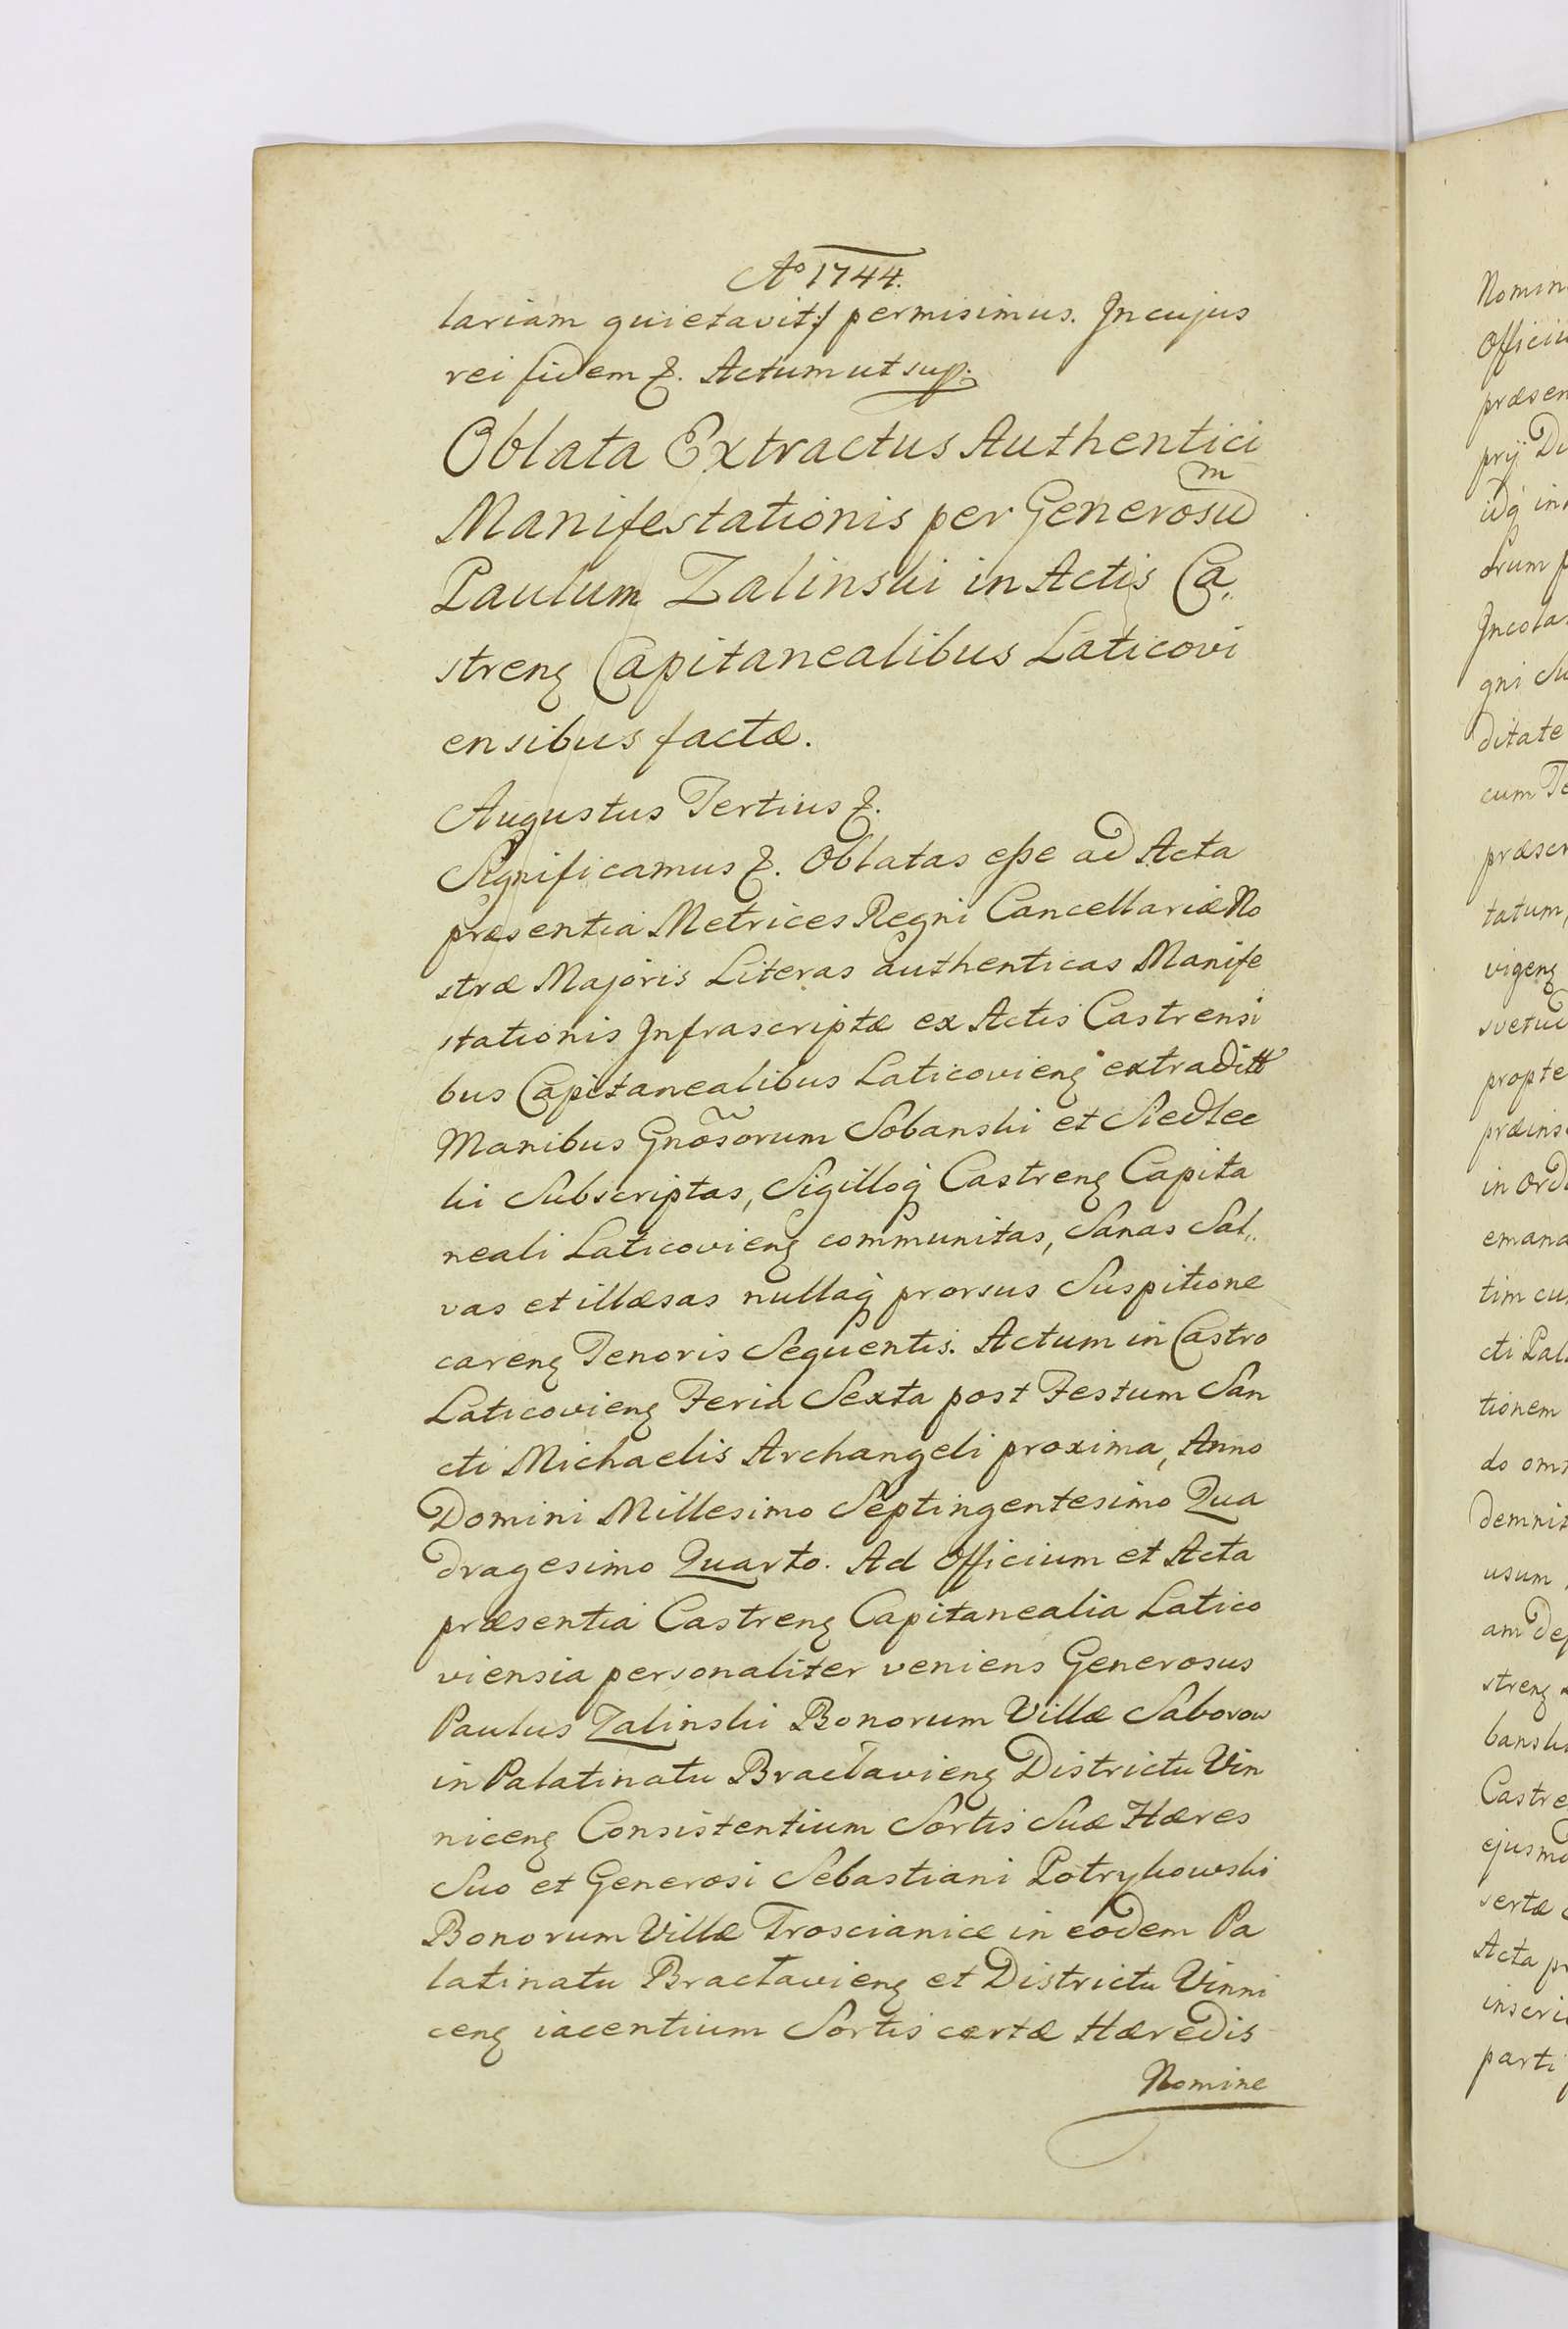 Aº 1744.
lariam quietavit:/ permisimus. In cujus
rei fidem &. Actum ut sup:
Oblata Extractus Authentici
Manifestationis per Generosu͞m
Paulum Zalinski in Actis Ca„
streng Capitanealibus Laticovi
ensibus factæ.
Augustus Tertius &.
Significamus &. Oblatas esse ad Acta
præsentia Metrices Regni Cancellariæ No
stræ Majoris Literas authenticas Manife
stationis Infrascriptæ ex Actis Castrensi
bus Capitanealibus Laticovieng extraditt
Manibus Gnõsorum Sobanski et Siedlec
ki Subscriptas, Sigilloq Castreng Capita
neali Laticovieng communitas, Sanas Sal„
vas et illæsas nullaq prorsus Suspitione
careng Tenoris Sequentis. Actum in Castro
Laticovieng Feria Sexta post Festum San
cti Michaelis Archangeli proxima, Anno
Domini Millesimo Septingentesimo Qua
dragesimo Quarto. Ad Officium et Acta
præsentia Castreng Capitanealia Latico
viensia personaliter veniens Generosus
Paulus Zalinski Bonorum Villæ Saborow
in Palatinatu Braclavieng Districtu Vin
niceng Consistentium Sortis Suæ Hæres
Suo et Generosi Sebastiani Potrykowski
Bonorum Villæ Troscianice in eodem Pa
latinatu Braclavieng et Districtu Vinni
ceng iacentium Sortis certæ Hæredis
Nomine
Nomin
Officiu
præsen
prij Di
idq in
orum
Incola
gni Su
ditate
cum Te
præscr
tatum,
vigeng
svetud
propte
præins
in Ord
emana
tim cu
cti Pal
tionem
do om
demnit
usum
am De
streng
bansk
Castre
ejusmo
sertæ
Acta pr
inscri
parti